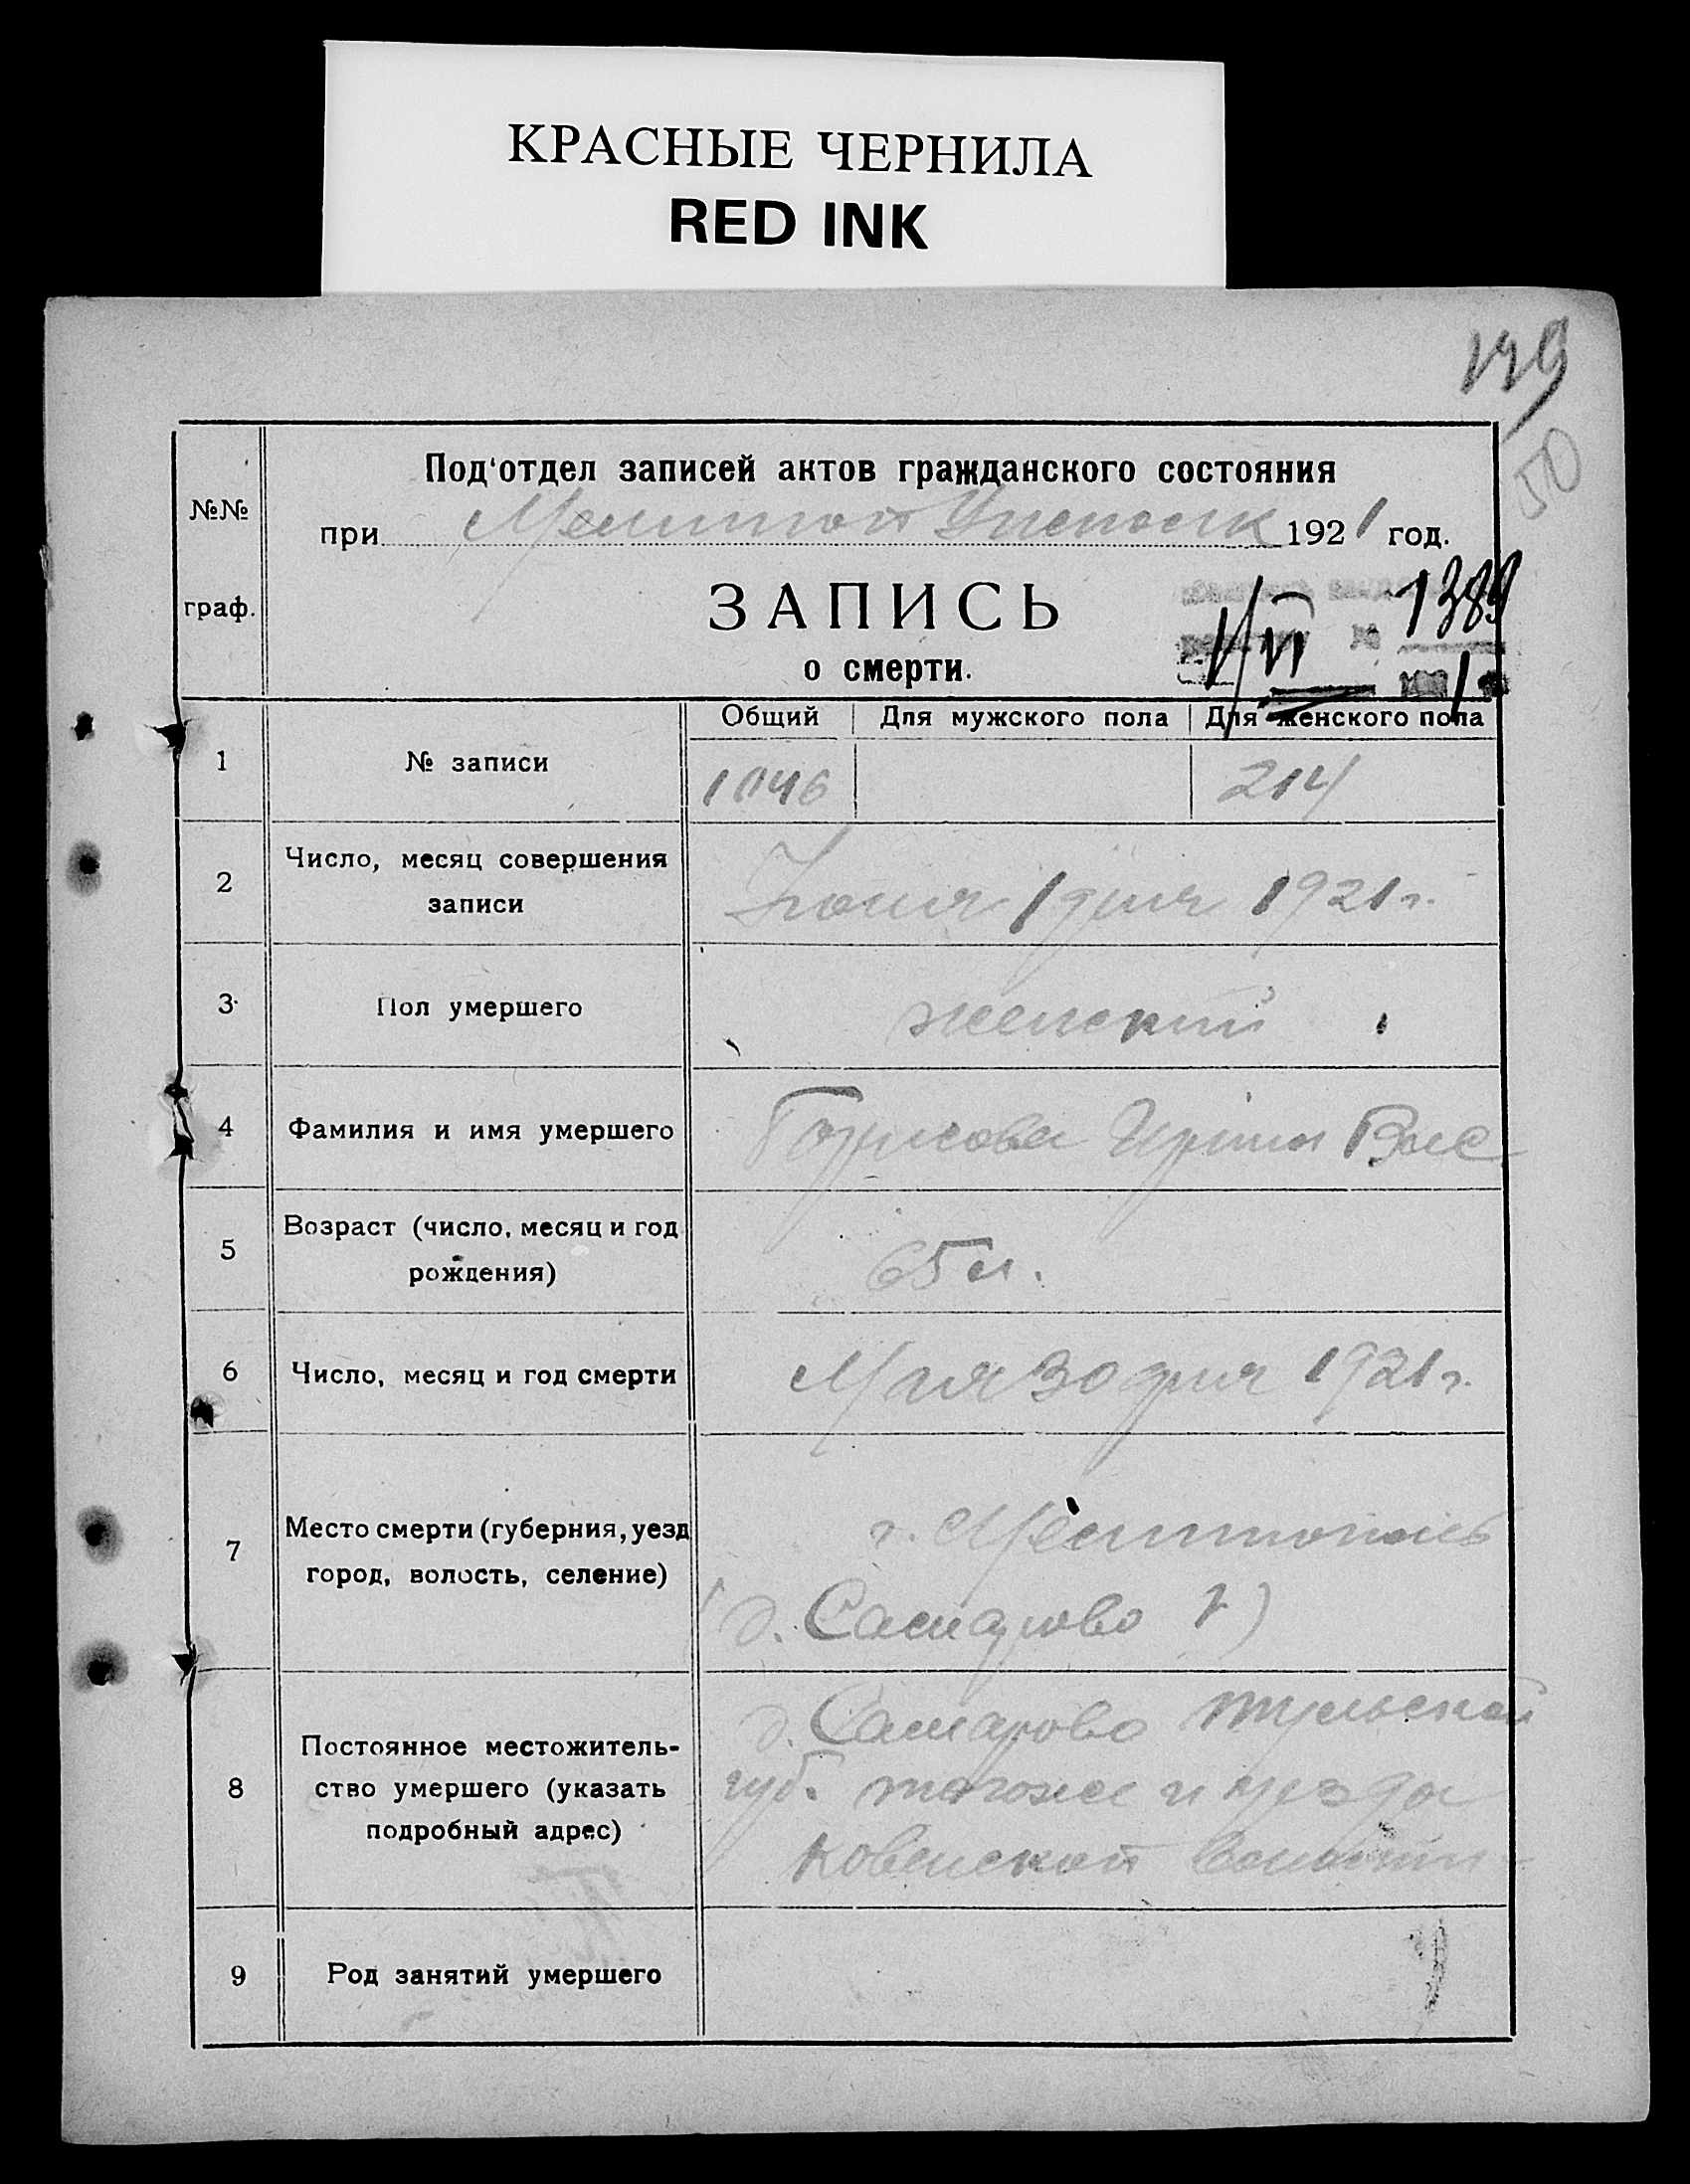 КРАСНЫЕ ЧЕРНИЛА
RED INK
149
50
Под'отдел записей актов гражданского состояния
№№
при Мелитоп 1921 год.
ЗАПИСЬ
граф.
1/VI № 1389
о смерти.
Общий Для мужского пола Для женского пола
1 № записи 1046 214
2 Число, месяц совершения
записи
Июня 1 дня 1921 г.
3 Пол умершего женский
4 Фамилия и имя умершего Борисова Ирина Вас
5 Возраст (число, месяц и год
рождения)
65 л.
6 Число, месяц и год смерти Мая 30 дня 1921 г.
7 Место смерти (губерния, уезд
город, волость, селение)
г. Мелитополь
(д.
8 Постоянное местожитель-
ство умершего (указать
подробный адрес)
д. Тульской
губ. тогоже и уезда
волости
9 Род занятий умершего